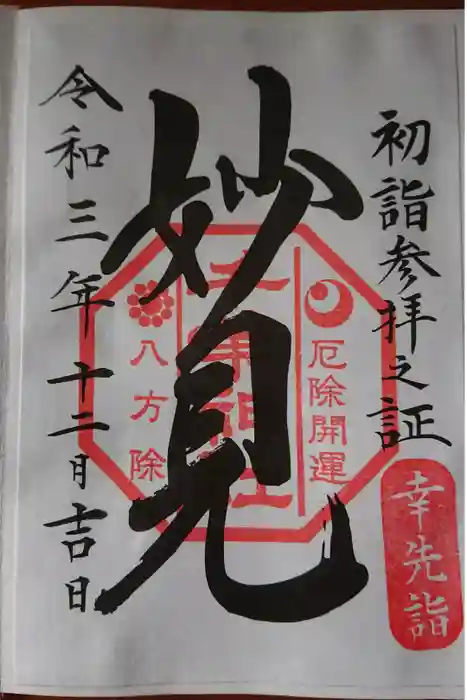 初詣参拝之証
幸先詣
妙見
厄除開運
八方除
令和三年十二月吉日